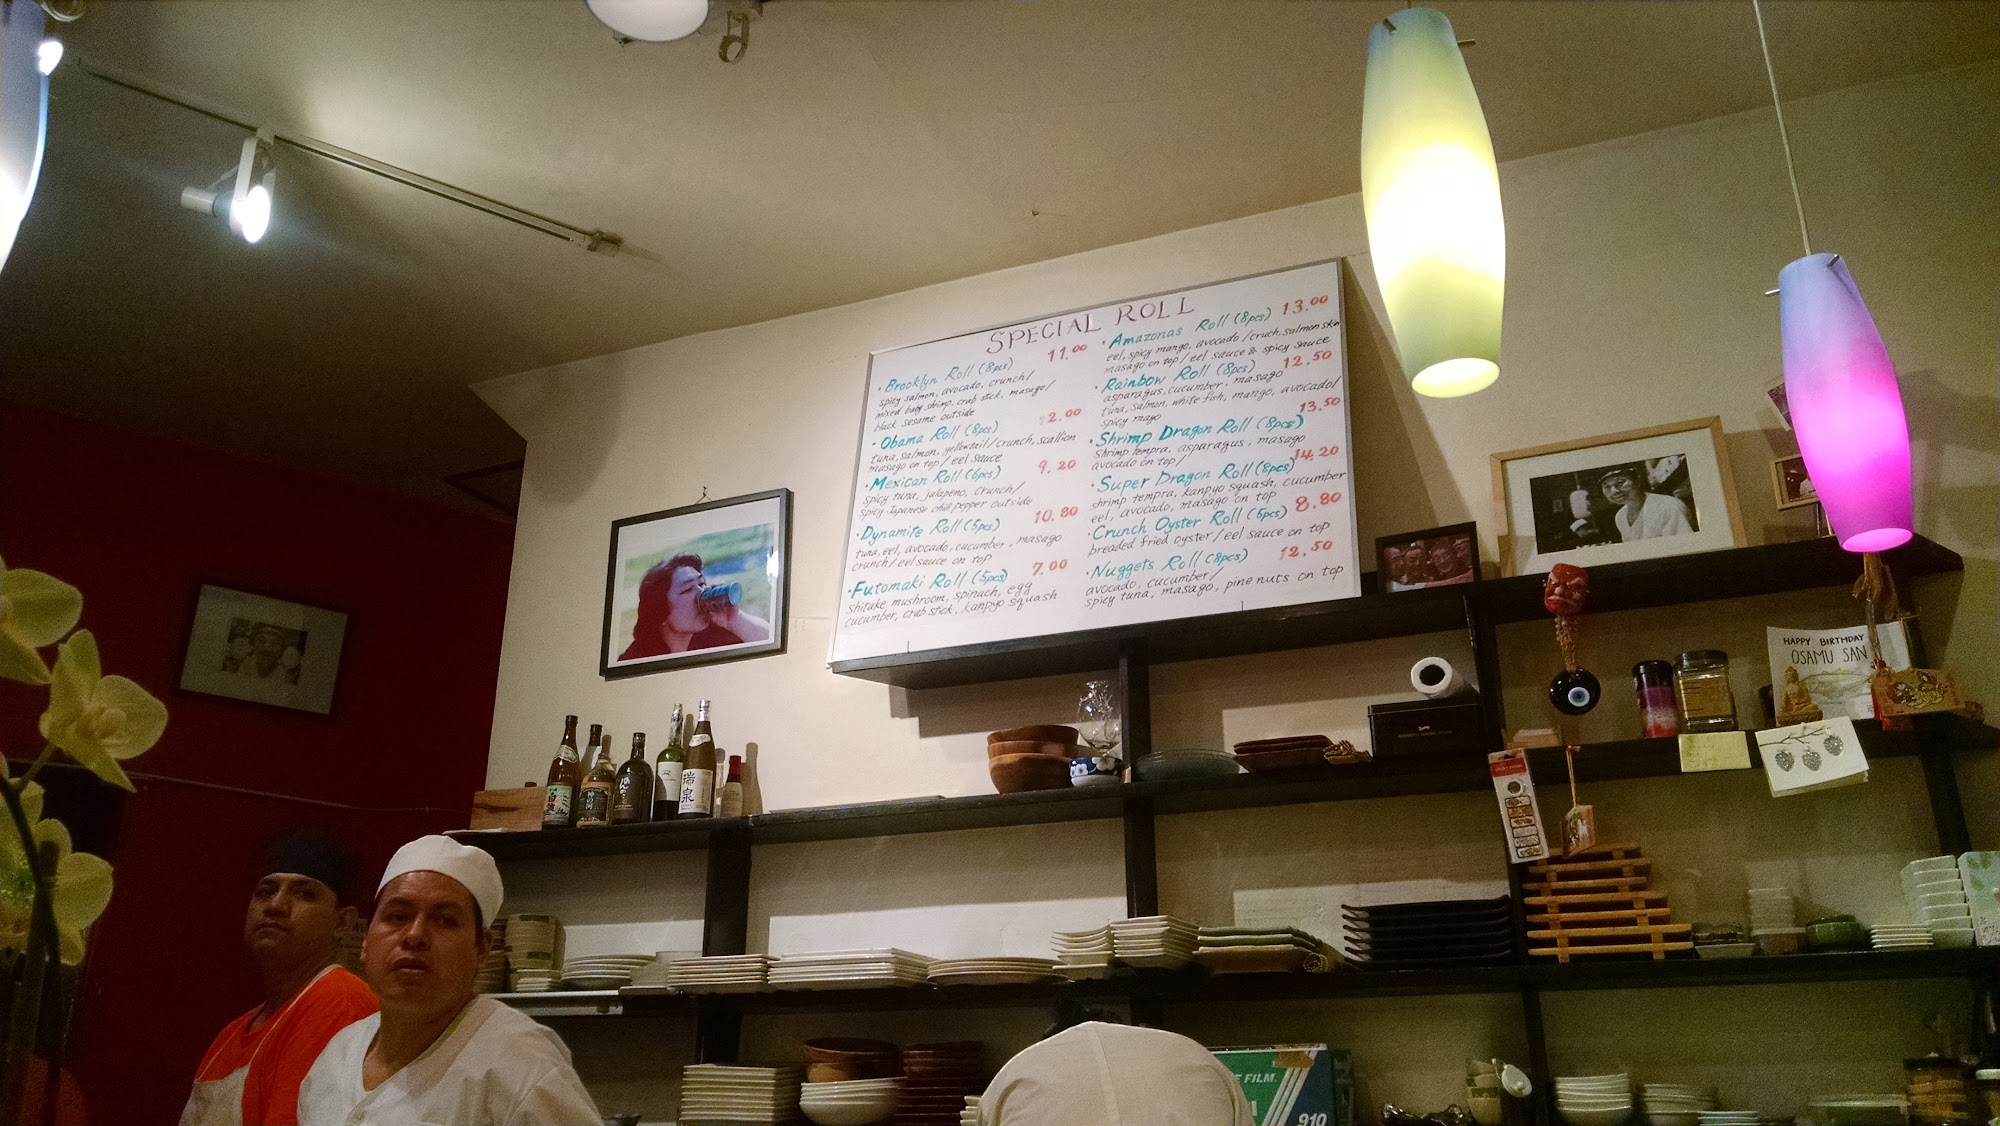 SPECIAL ROLL
• Brooklyn Roll (8pcs) 11.00
spicy salmon, avocado, crunch/
mixed baby shrimp, crab stick, masago/
black sesame outside
• Obama Roll (8pcs) 12.00
tuna, salmon, yellowtail/crunch, scallion
masago on top/eel sauce
• Mexican Roll (6pcs) 9.20
spicy tuna, jalapeno, crunch/
spicy Japanese chili pepper outside
• Dynamite Roll (5pcs) 10.80
tuna, eel, avocado, cucumber, masago
crunch/eel sauce on top
• Futomaki Roll (5pcs) 7.00
shitake mushroom, spinach, egg
cucumber, crab stick, kanpyo squash
• Amazonas Roll (8pcs) 13.00
eel, spicy mango, avocado/cruch, salmon skin
masago on top/eel sauce & spicy sauce
• Rainbow Roll (8pcs) 12.50
asparagus, cucumber, masago
tuna, salmon, white fish, mango, avocado/
spicy mayo
• Shrimp Dragon Roll (8pcs) 13.50
Shrimp tempra, asparagus, masago
avocado on top/
• Super Dragon Roll (8pcs) 14.20
shrimp tempra, kanpyo squash, cucumber
eel, avocado, masago on top
• Crunch Oyster Roll (5pcs) 8.80
breaded fried oyster/eel sauce on top
• Nuggets Roll (8pcs) 12.50
avocado, cucumber/
spicy tuna, masago, pine nuts on top
HAPPY BIRTHDAY
OSAMU SAN
瑞泉
FILM.
910